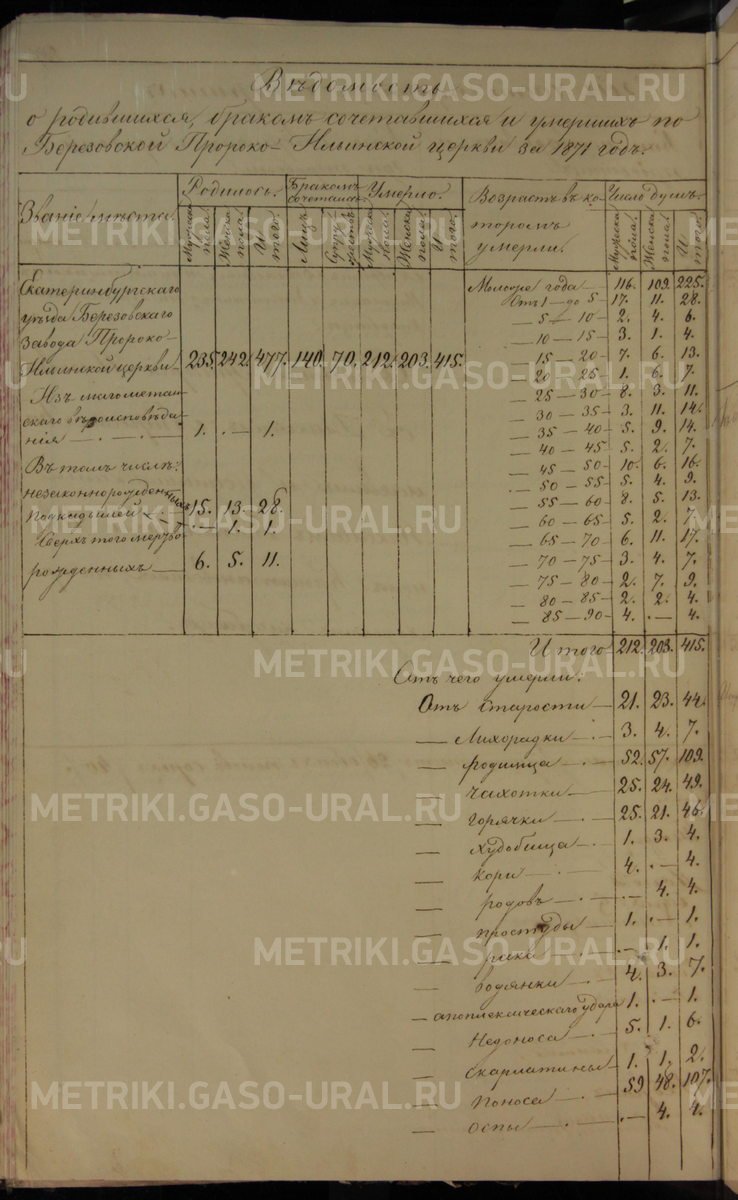 Вѣдомость
о родившихся, бракомъ сочетавшихся и умершихъ по
Березовской Пророко-Ильинской церкви за 1871 годъ.
Званіе мѣста. Родилось. Бракомъ сочеталось. Умерло. Возрастъ въ которомъ умерли. Число душъ.
Мужеска пола. Женска пола. И того. Лицъ. Супружествъ. Мужеска пола. Женска пола. И того. Мужеска пола. Женска пола. И того.
Екатеринбургскаго
уѣзда Березовскаго
Завода Пророко-
Ильинской церкви 235. 242. 477. 140. 70. 212. 203. 415.
Изъ магометан-
скаго вѣроисповѣда-
нія 1. — 1.
Въ томъ числѣ:
незаконнорожденныхъ 15. 13. 28.
Подкидышей — 1. 1.
Сверхъ того мертво-
рожденныхъ 6. 5. 11.
Моложе года 116. 109. 225.
Отъ 1 — до 5 17. 11. 28.
— 5 — 10 2. 4. 6.
— 10 — 15 3. 1. 4.
— 15 — 20 7. 6. 13.
— 20 — 25 1. 6. 7.
— 25 — 30 8. 3. 11.
— 30 — 35 3. 11. 14.
— 35 — 40 5. 9. 14.
— 40 — 45 5. 2. 7.
— 45 — 50 10. 6. 16.
— 50 — 55 5. 4. 9.
— 55 — 60 8. 5. 13.
— 60 — 65 5. 2. 7.
— 65 — 70 6. 11. 17.
— 70 — 75 3. 4. 7.
— 75 — 80 2. 7. 9.
— 80 — 85 2. 2. 4.
— 85 — 90 4. — 4.
И того 212. 203. 415.
Отъ чего умерли:
Отъ старости 21. 23. 44.
— Лихорадки 3. 4. 7.
— родимца 52. 57. 109.
— чахотки 25. 24. 49.
— горячки 25. 21. 46.
— худобища 1. 3. 4.
— кори 4. — 4.
— родовъ — 4. 4.
— простуды 1. — 1.
— рака — 1. 1.
— водянки 4. 3. 7.
— апоплексическаго удара 1. — 1.
— Недоноса 5. 1. 6.
— скарлатины 1. 1. 2.
— поноса 59 48. 107.
— оспы — 4. 4.
METRIKI.GASO-URAL.RU